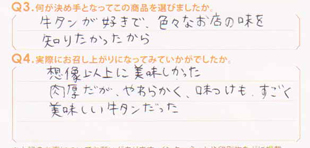 Q3.何が決め手となってこの商品を選びましたか。
牛タンが好きで、色々なお店の味を
知りたかったから
Q4.実際にお召し上がりになってみていかがでしたか。
想像以上に美味しかった
肉厚だが、やわらかく、味つけも、すごく
美味しい牛タンだった